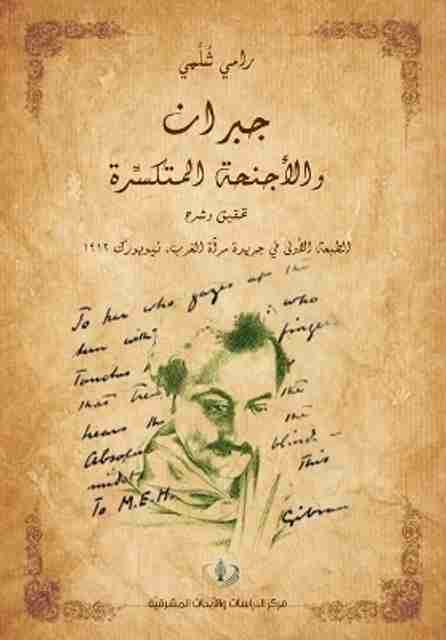 رامي شُلَّمي
جبران
والأجنحة المتكسِّرة
تحقيق وشرح
الطبعة الأولى في جريدة مرآة الغرب، نيويورك ١٩١٢
To her who gazes at the
who
sun with
fingers
Touches
the
that tre
the
hears the
blind
Absolu
this
midst
To M.E.H.
Gibran
مركز الدراسات والأبحاث المشرقية